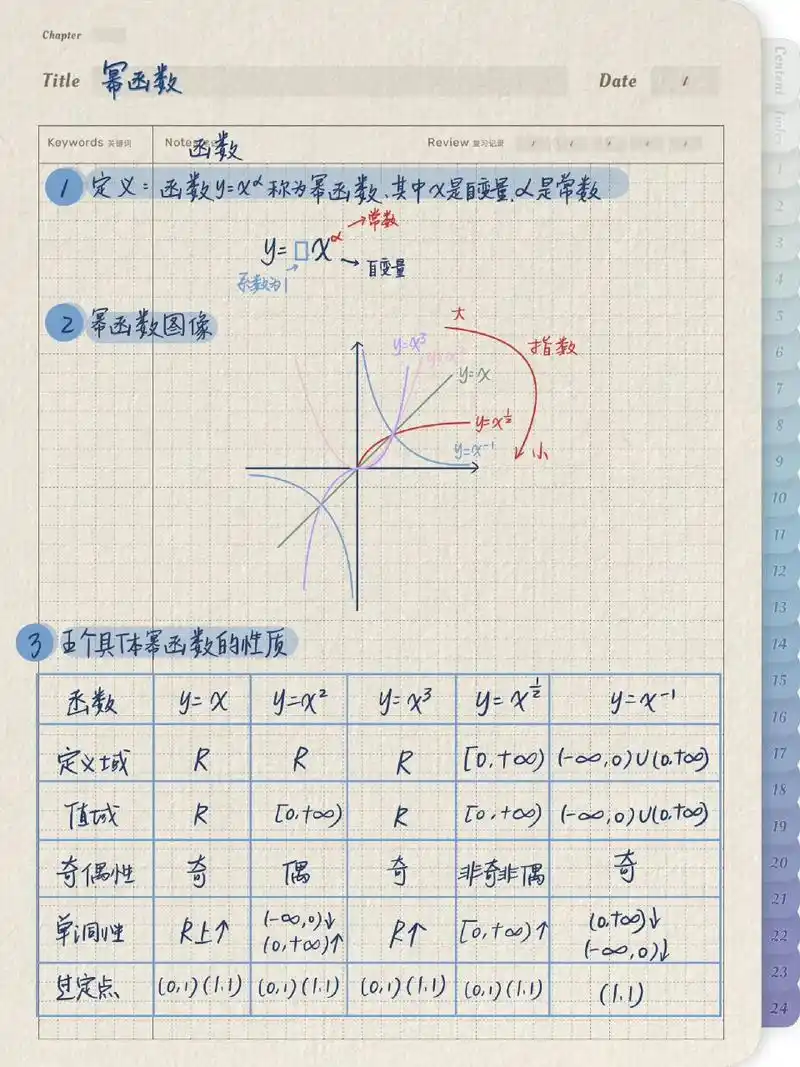 Chapter
Title 幂函数 Date /
Keywords 关键词 Notes 函数 Review 复习记录 / / / / /
1 定义：函数y=x^α称为幂函数、其中x是自变量,α是常数
y=□x^α →常数
系数为1 →自变量
2 幂函数图像
大
y=x³ y=x² 指数
y=x
y=x^½
y=x⁻¹ 小
3 五个具体幂函数的性质
函数 y=x y=x² y=x³ y=x^½ y=x⁻¹
定义域 R R R [0,+∞) (-∞,0)∪(0,+∞)
值域 R [0,+∞) R [0,+∞) (-∞,0)∪(0,+∞)
奇偶性 奇 偶 奇 非奇非偶 奇
单调性 R上↑ (-∞,0)↓ (0,+∞)↑ R↑ [0,+∞)↑ (0,+∞)↓ (-∞,0)↓
过定点 (0,1)(1.1) (0,1)(1.1) (0,1)(1.1) (0,1)(1.1) (1.1)
Content
Index
1
2
3
4
5
6
7
8
9
10
11
12
13
14
15
16
17
18
19
20
21
22
23
24